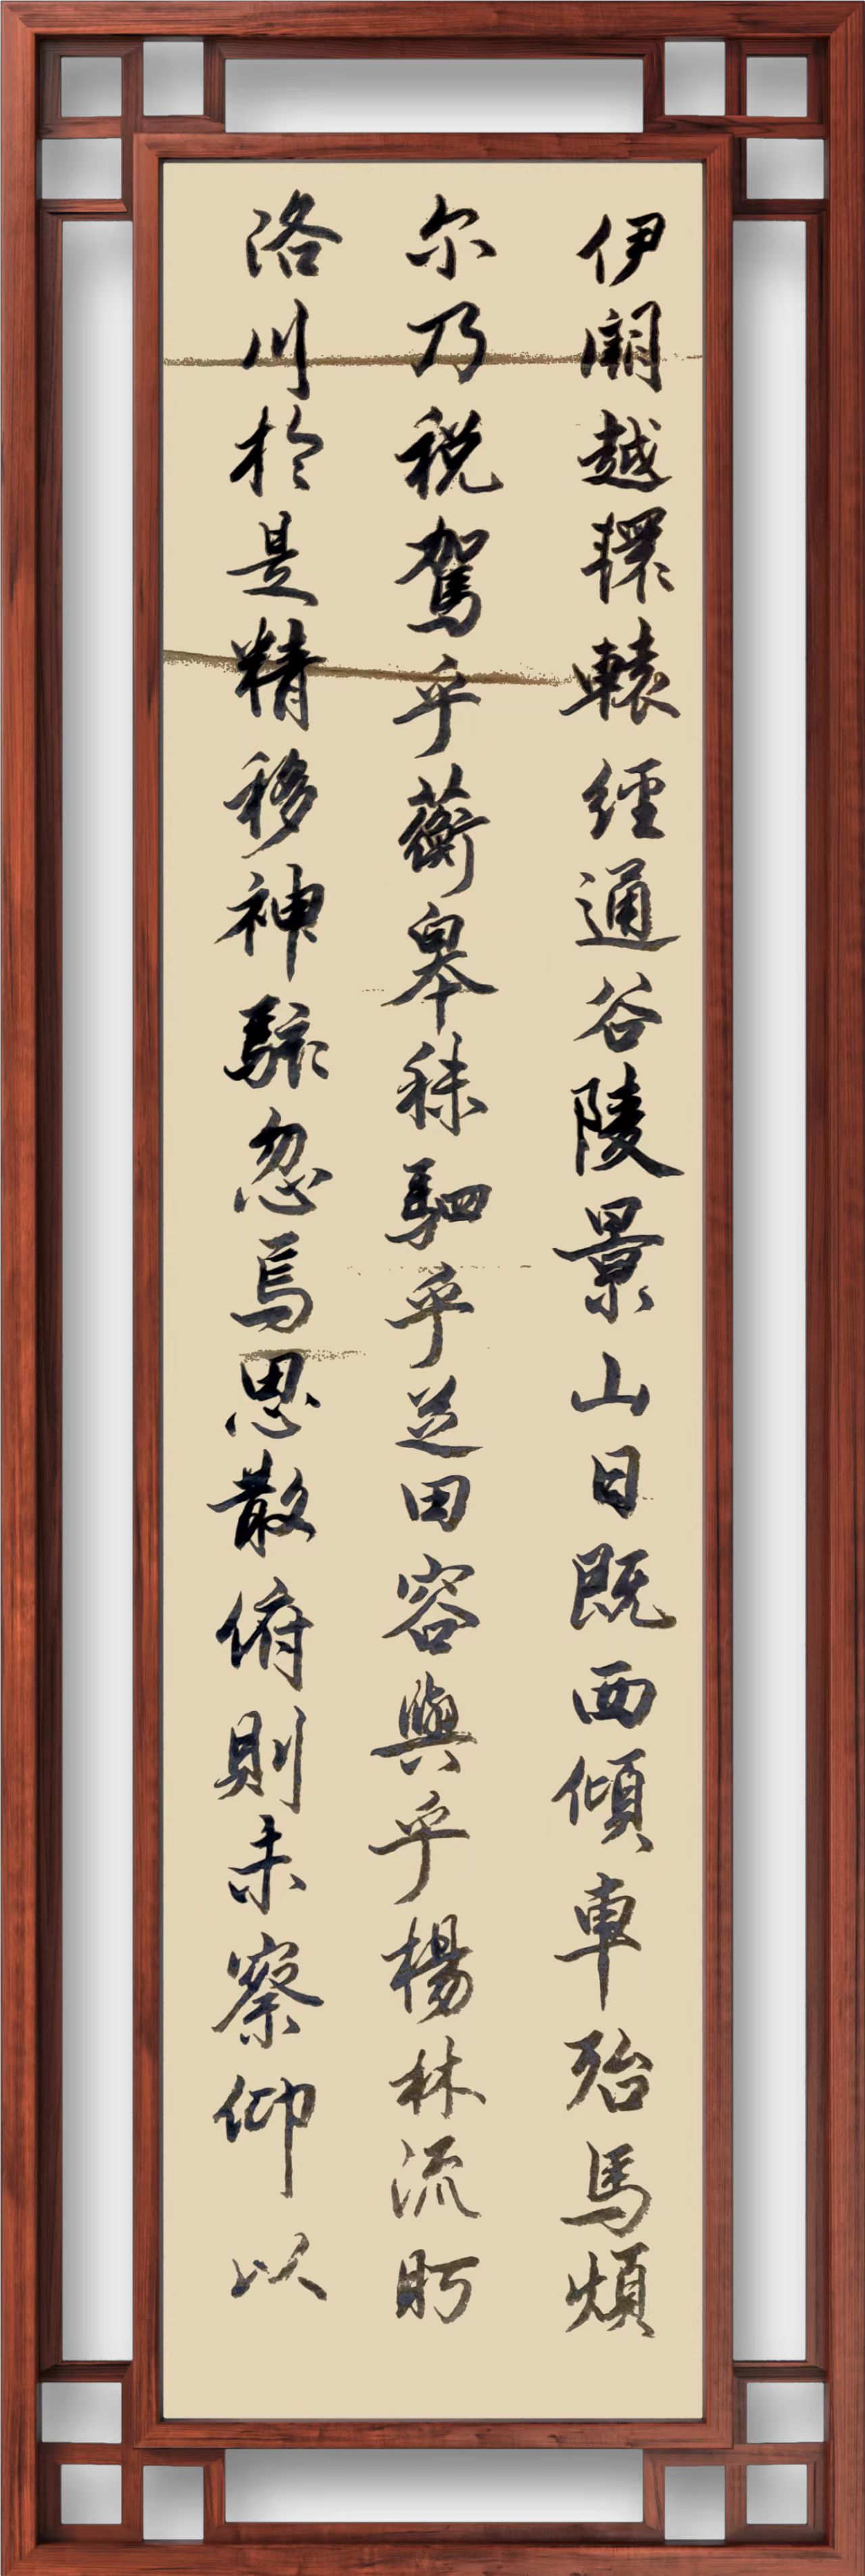 伊闕越轘轅經通谷陵景山日既西傾車殆馬煩
尔乃税駕乎蘅皋秣駟乎芝田容與乎楊林流眄
洛川於是精移神駭忽焉思散俯則未察仰以